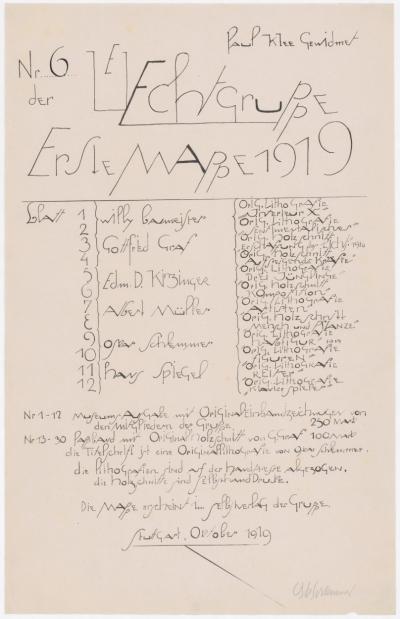 Paul Klee Gewidmet
Nr. 6
der
Üechtgruppe
Erste Mappe 1919
Blatt 1 willy baumeister Orig. Lithografie
2 Orig. Lithografie
3 Gottfried Graf Orig. Holzschnitt
4 Orig. Holzschnitt
5 Edm D. Kinzinger Orig. Lithografie
6 Orig. Holzschnitt
Komposition
7 Albert Müller Orig. Lithografie
8 Orig. Holzschnitt
Mensch und Pflanze
9 Oskar Schlemmer Orig. Lithografie
10 Orig. Lithografie
Figuren
11 hans Spiegel Orig. Lithografie
Reiter
12 Orig. Lithografie
Klavierspieler
Nr 1-12 Museums-Ausgabe mit Originaleinbandzeichnungen von
den Mitgliedern der Gruppe. 250 Mark
Nr 13-30 Pappband mit Originalholzschnitt von G Graf 100 Mark
die Titelschrift ist eine Originallithografie von Oskar Schlemmer.
die Lithografien sind auf der Handpresse abgezogen.
die Holzschnitte sind Selbsthanddrucke.
Die Mappe erscheint im Selbstverlag der Gruppe
Stuttgart. Oktober 1919